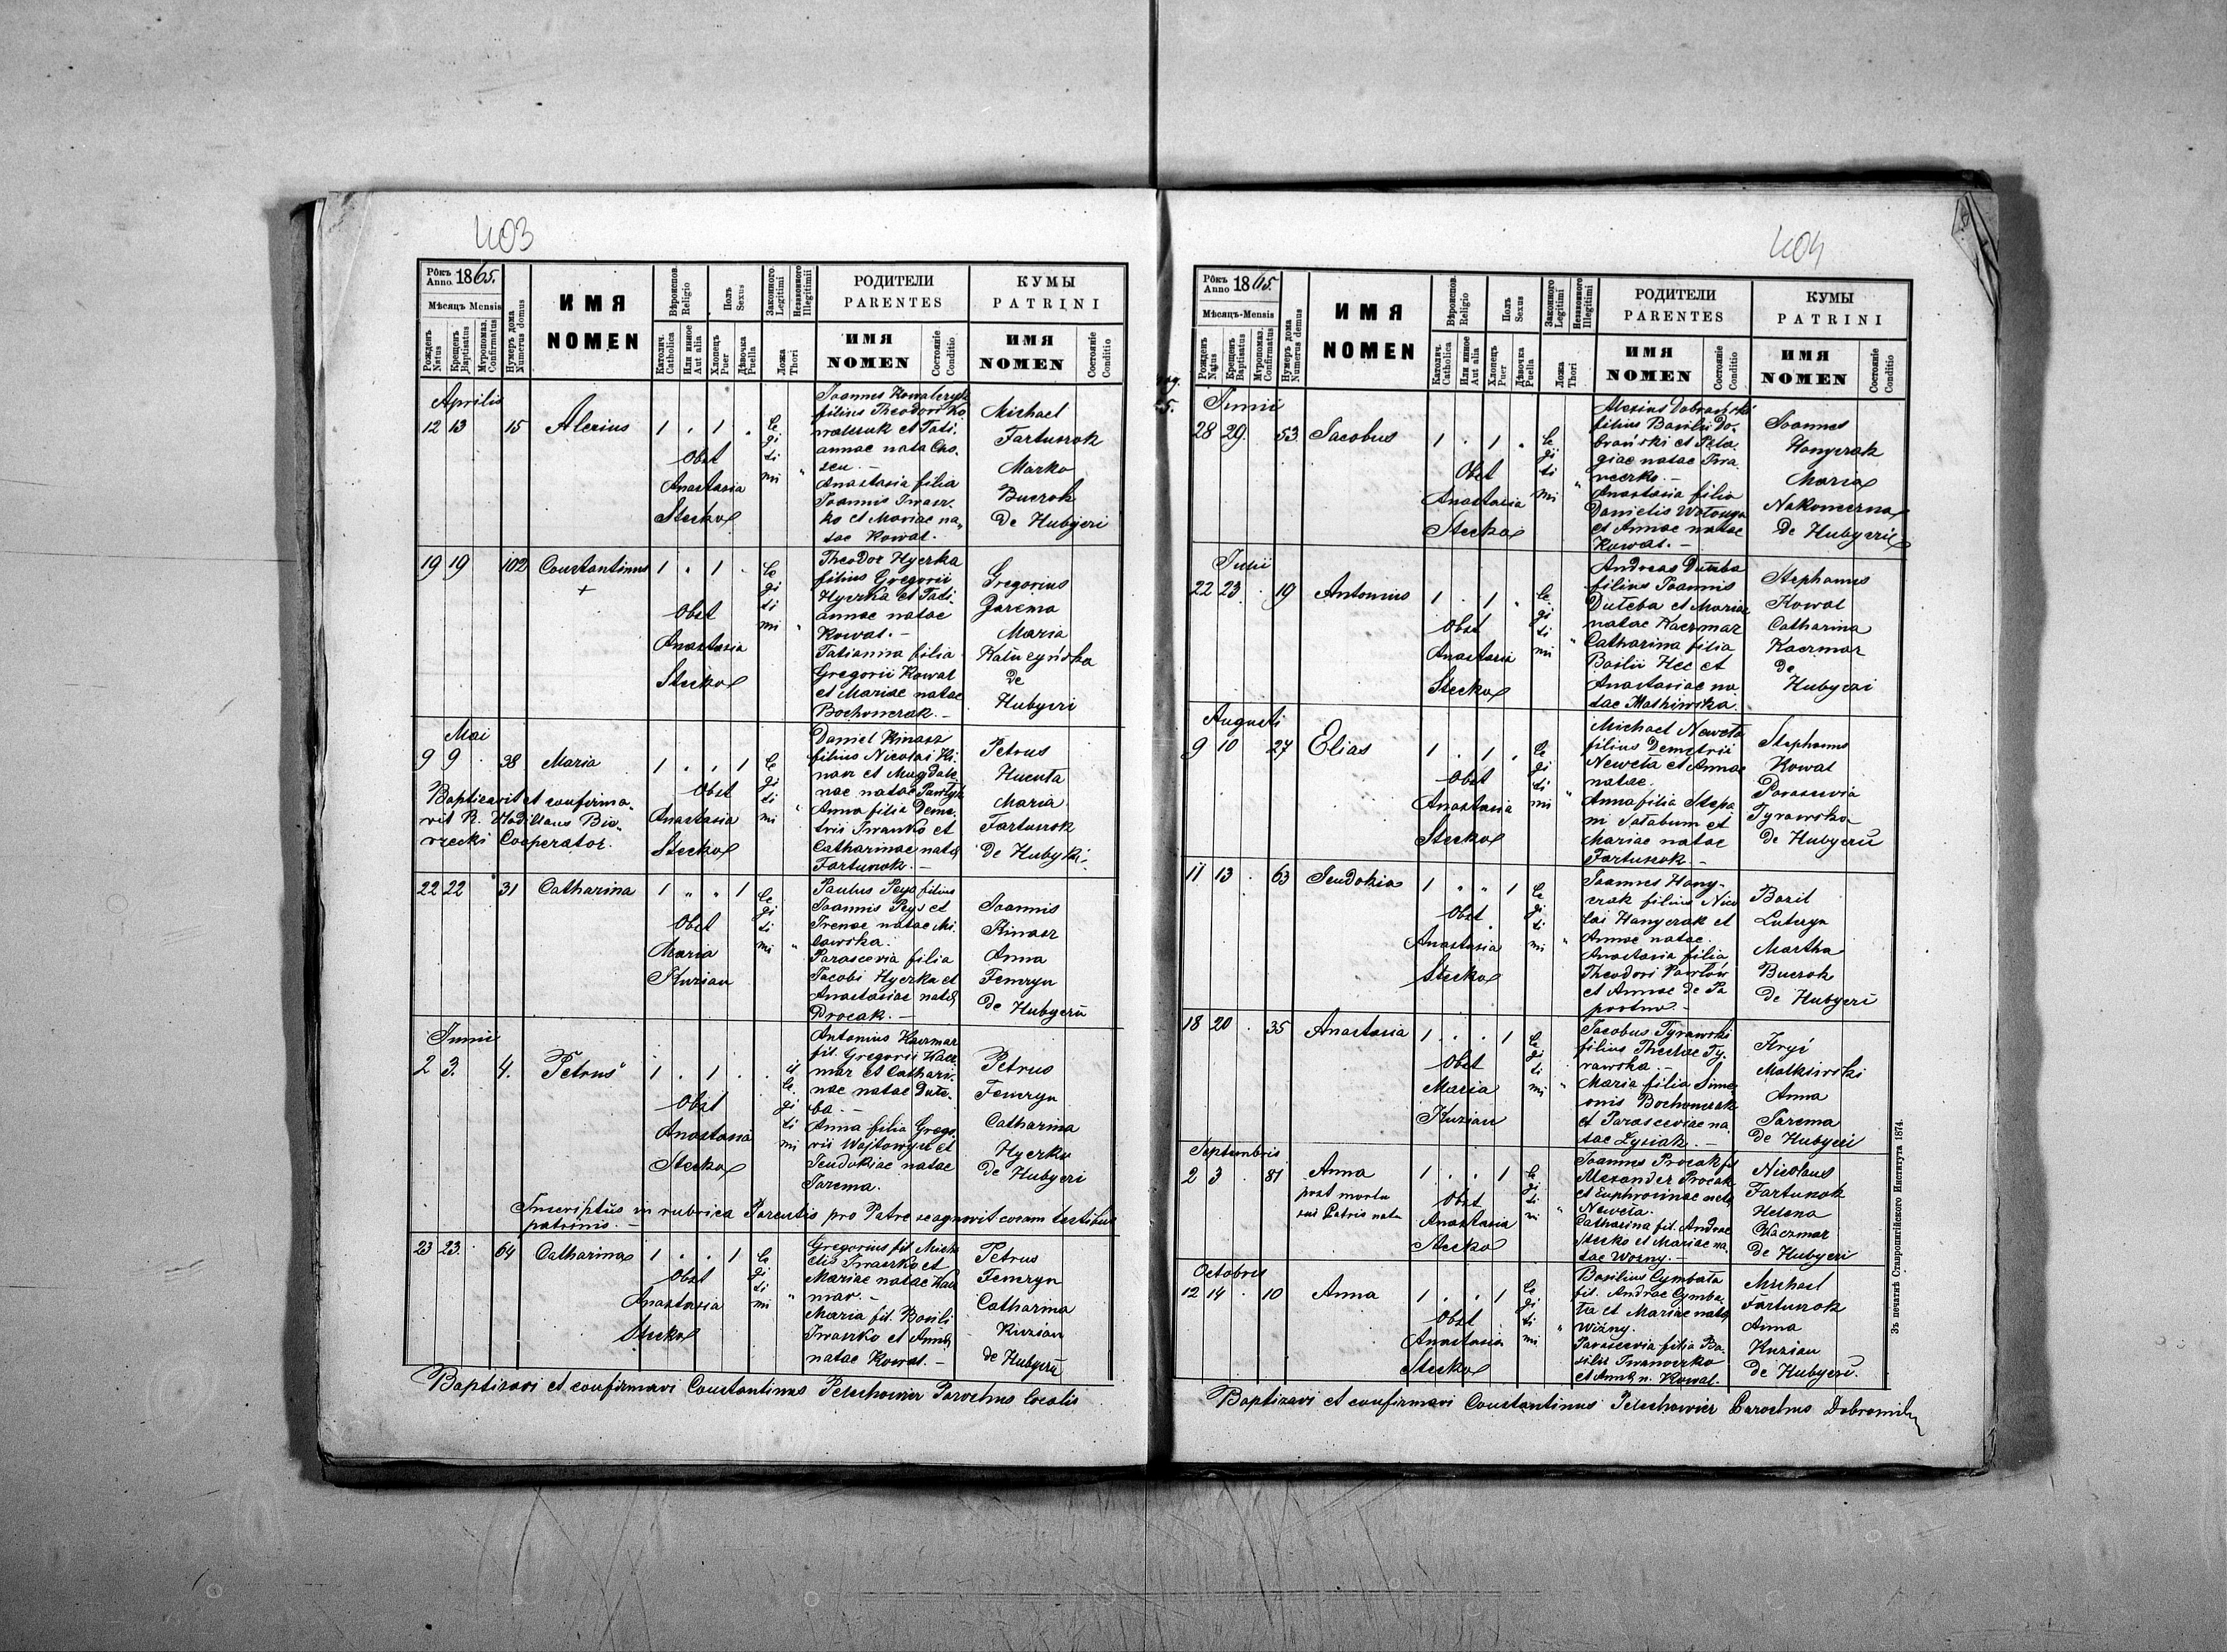 403
Рôкъ Anno. 1865.
Мѣсяцъ Mensis
Рожденъ Natus
Крещенъ Baptisatus
Мѵропомаз. Confirmatus
Нумеръ дома Numerus domus
ИМЯ
NOMEN
Вѣроиспов. Religio
Католич. Catholica
Или инное Aut alia
Полъ Sexus
Хлопецъ Puer
Дѣвочка Puella
Законного Legitimi
Незаконного Illegitimii
Ложа Thori
РОДИТЕЛИ
PARENTES
ИМЯ
NOMEN
Состояніе Conditio
КУМЫ
PATRINI
ИМЯ
NOMEN
Состояніе Conditio
Aprilis
12 13 15 Alexius 1 . 1 .
Obst
Anastasia
Stecko
legitimi
Joannes Kowalczuk
filius Theodori Ko
walczuk et Tati
annae nata
Anastasia filia
Joannis Iwasz
ko et Mariae na
tae Kowal.
Michael
Fartuszok
Marko
Buczok
de Hubyczi
19 19 102 Constantinus 1 . 1 .
+
Obst
Anastasia
Stecko
legitimi
Theodor Hyczka
filius Gregorii
Hyczka et Tati
annae natae
Kowal. –
Tatianna filia
Gregorii Kowal
et Mariae natae
Bochonczak. –
Gregorius
Jarema
Maria
Katuczyńska
de
Hubyczi
Mai
9 9 38 Maria 1 . . 1
Baptizavit et confirma
vit R.
Cooperator.
Obst
Anastasia
Stecko
legitimi
Daniel Kinasz
filius Nicolai Ki
nasz et Magdale
nae natae
Anna filia Deme
trii Iwanko et
Catharinae natae
Fartuszok. –
Petrus
Hucuta
Maria
Fartuszok
de Hubyczi
22 22 31 Catharina 1 " " 1
Obst
Maria
Kuzian
legitimi
Paulus Peys filius
Joannis Peys et
Irenae natae Mi
lawska.
Parascevia filia
Jacobi Hyczka et
Anastasiae natae
Procak. –
Joannis
Kinasz
Anna
Femczyn
de Hubyczi
Junii
2 3. 4. Petrus 1 . 1 . .
Obst
Anastasia
Stecko
illegitimi
Antonius Kaczmar
fil. Gregorii Kacz
mar et Cathari
nae natae Dute
ba. –
Anna filia Grego
rii Wojtowycz et
Jeudokiae natae
Jarema.
Petrus
Femczyn
Catharina
Hyczka
de Hubyczi
Inscriptus in rubrica Parentis pro Patre se agnovit coram testibus
patrinis. –
23 23. 64 Catharina 1 . . 1
Obst
Anastasia
Stecko
legitimi
Gregorius fil. Micha
elis Iwaszko et
Mariae natae Kacz
mar. –
Maria fil. Basili
Iwaszko et Annae
natae Kowal. –
Petrus
Femczyn
Catharina
Kuzian
de Hubyczi
Baptizavi et confirmavi Constantinus Pelechowicz Parochus localis
404
Рôкъ Anno 1865.
Мѣсяцъ-Mensis
Рожденъ Natus
Крещенъ Baptisatus
Мѵропомаз. Confirmatus
Нумеръ дома Numerus domus
ИМЯ
NOMEN
Вѣроиспов. Religio
Католич. Catholica
Или инное Aut alia
Полъ Sexus
Хлопецъ Puer
Дѣвочка Puella
Законного Legitimi
Незаконного Illegitimi
Ложа Thori
РОДИТЕЛИ
PARENTES
ИМЯ
NOMEN
Состояніе Conditio
КУМЫ
PATRINI
ИМЯ
NOMEN
Состояніе Conditio
Junii
28 29. 53. Jacobus 1 . 1 .
Obst
Anastasia
Stecko
legitimi
Alexius Dobrański
filius Basilii Do
brański et Pela
giae natae Iwa
neczko. –
Anastasia filia
Danielis Watonga
et Annae natae
Kowal. –
Joannes
Hanyczak
Maria
Nakoneczna
de Hubyczi
Julii
22 23 . 19 Antonius 1 . 1 .
Obst
Anastasia
Stecko
legitimi
Andreas Duteba
filius Joannis
Duteba et Mariae
natae Kaczmar
Catharina filia
Basilii Hec et
Anastasiae na
tae Matkiwska.
Stephanus
Kowal
Catharina
Kaczmar
de
Hubyczi
Augusti
9 10 27 Elias 1 . 1 .
Obst
Anastasia
Stecko
legitimi
Michael Neweta
filius Demetrii
Neweta et Annae
natae.
Anna filia Stepa
ni Satabum et
Mariae natae
Fartuszok –
Stephanus
Kowal
Parascevia
Tyrawska
de Hubyczi
11 13 . 63 Jeudokia 1 " " 1
Obst
Anastasia
Stecko
legitimi
Joannes Hany
czak filius Nico
lai Hanyczak et
Annae natae.
Anastasia filia
Theodori Pawłów
et Annae de Pa
portno. –
Bazil
Luteryn
Martha
Buczok
de Hubyczi
18 20 . 35 Anastasia 1 . . 1
Obst
Maria
Kuzian
legitimi
Jacobus Tyrawski
filius Theclae Ty
rawska –
Maria filia Sime
onis Bochonczak
et Parasceviae na
tae Lysiak. –
Hryć
Matkiwski
Anna
Jarema
de Hubyczi
Septembris
2 3 . 81 Anna 1 . . 1
post mortem
sui Patris nata
Obst
Anastasia
Stecko
legitimi
Joannes Procak fil
Alexander Procak
et Euphrosinae natae
Neweta.
Catharina fil. Andreae
Stecko et Mariae na
tae Wozny. –
Nicolaus
Fartuszok
Helena
Kaczmar
de Hubyczi
Octobris
12 14 . 10 Anna 1 . . 1
Obst
Anastasia
Stecko
legitimi
Basilius Cymbała
fil. Andreae Cymba
ła et Mariae natae
Wizny.
Parascevia filia Ba
silii Iwaneczko
et Annae n. Kowal.
Michael
Fartuszok
Anna
Kuzian
de Hubyczi.
Baptizavi et confirmavi Constantinus Pelechowicz Parochus
Зъ печатнѣ Ставропигійского Института 1874.